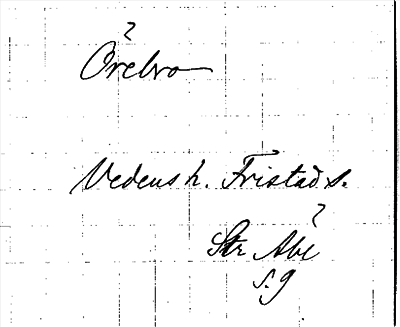 ?
Örebro
Vedens h. Fristad s.
?
Str Abl
s. 9